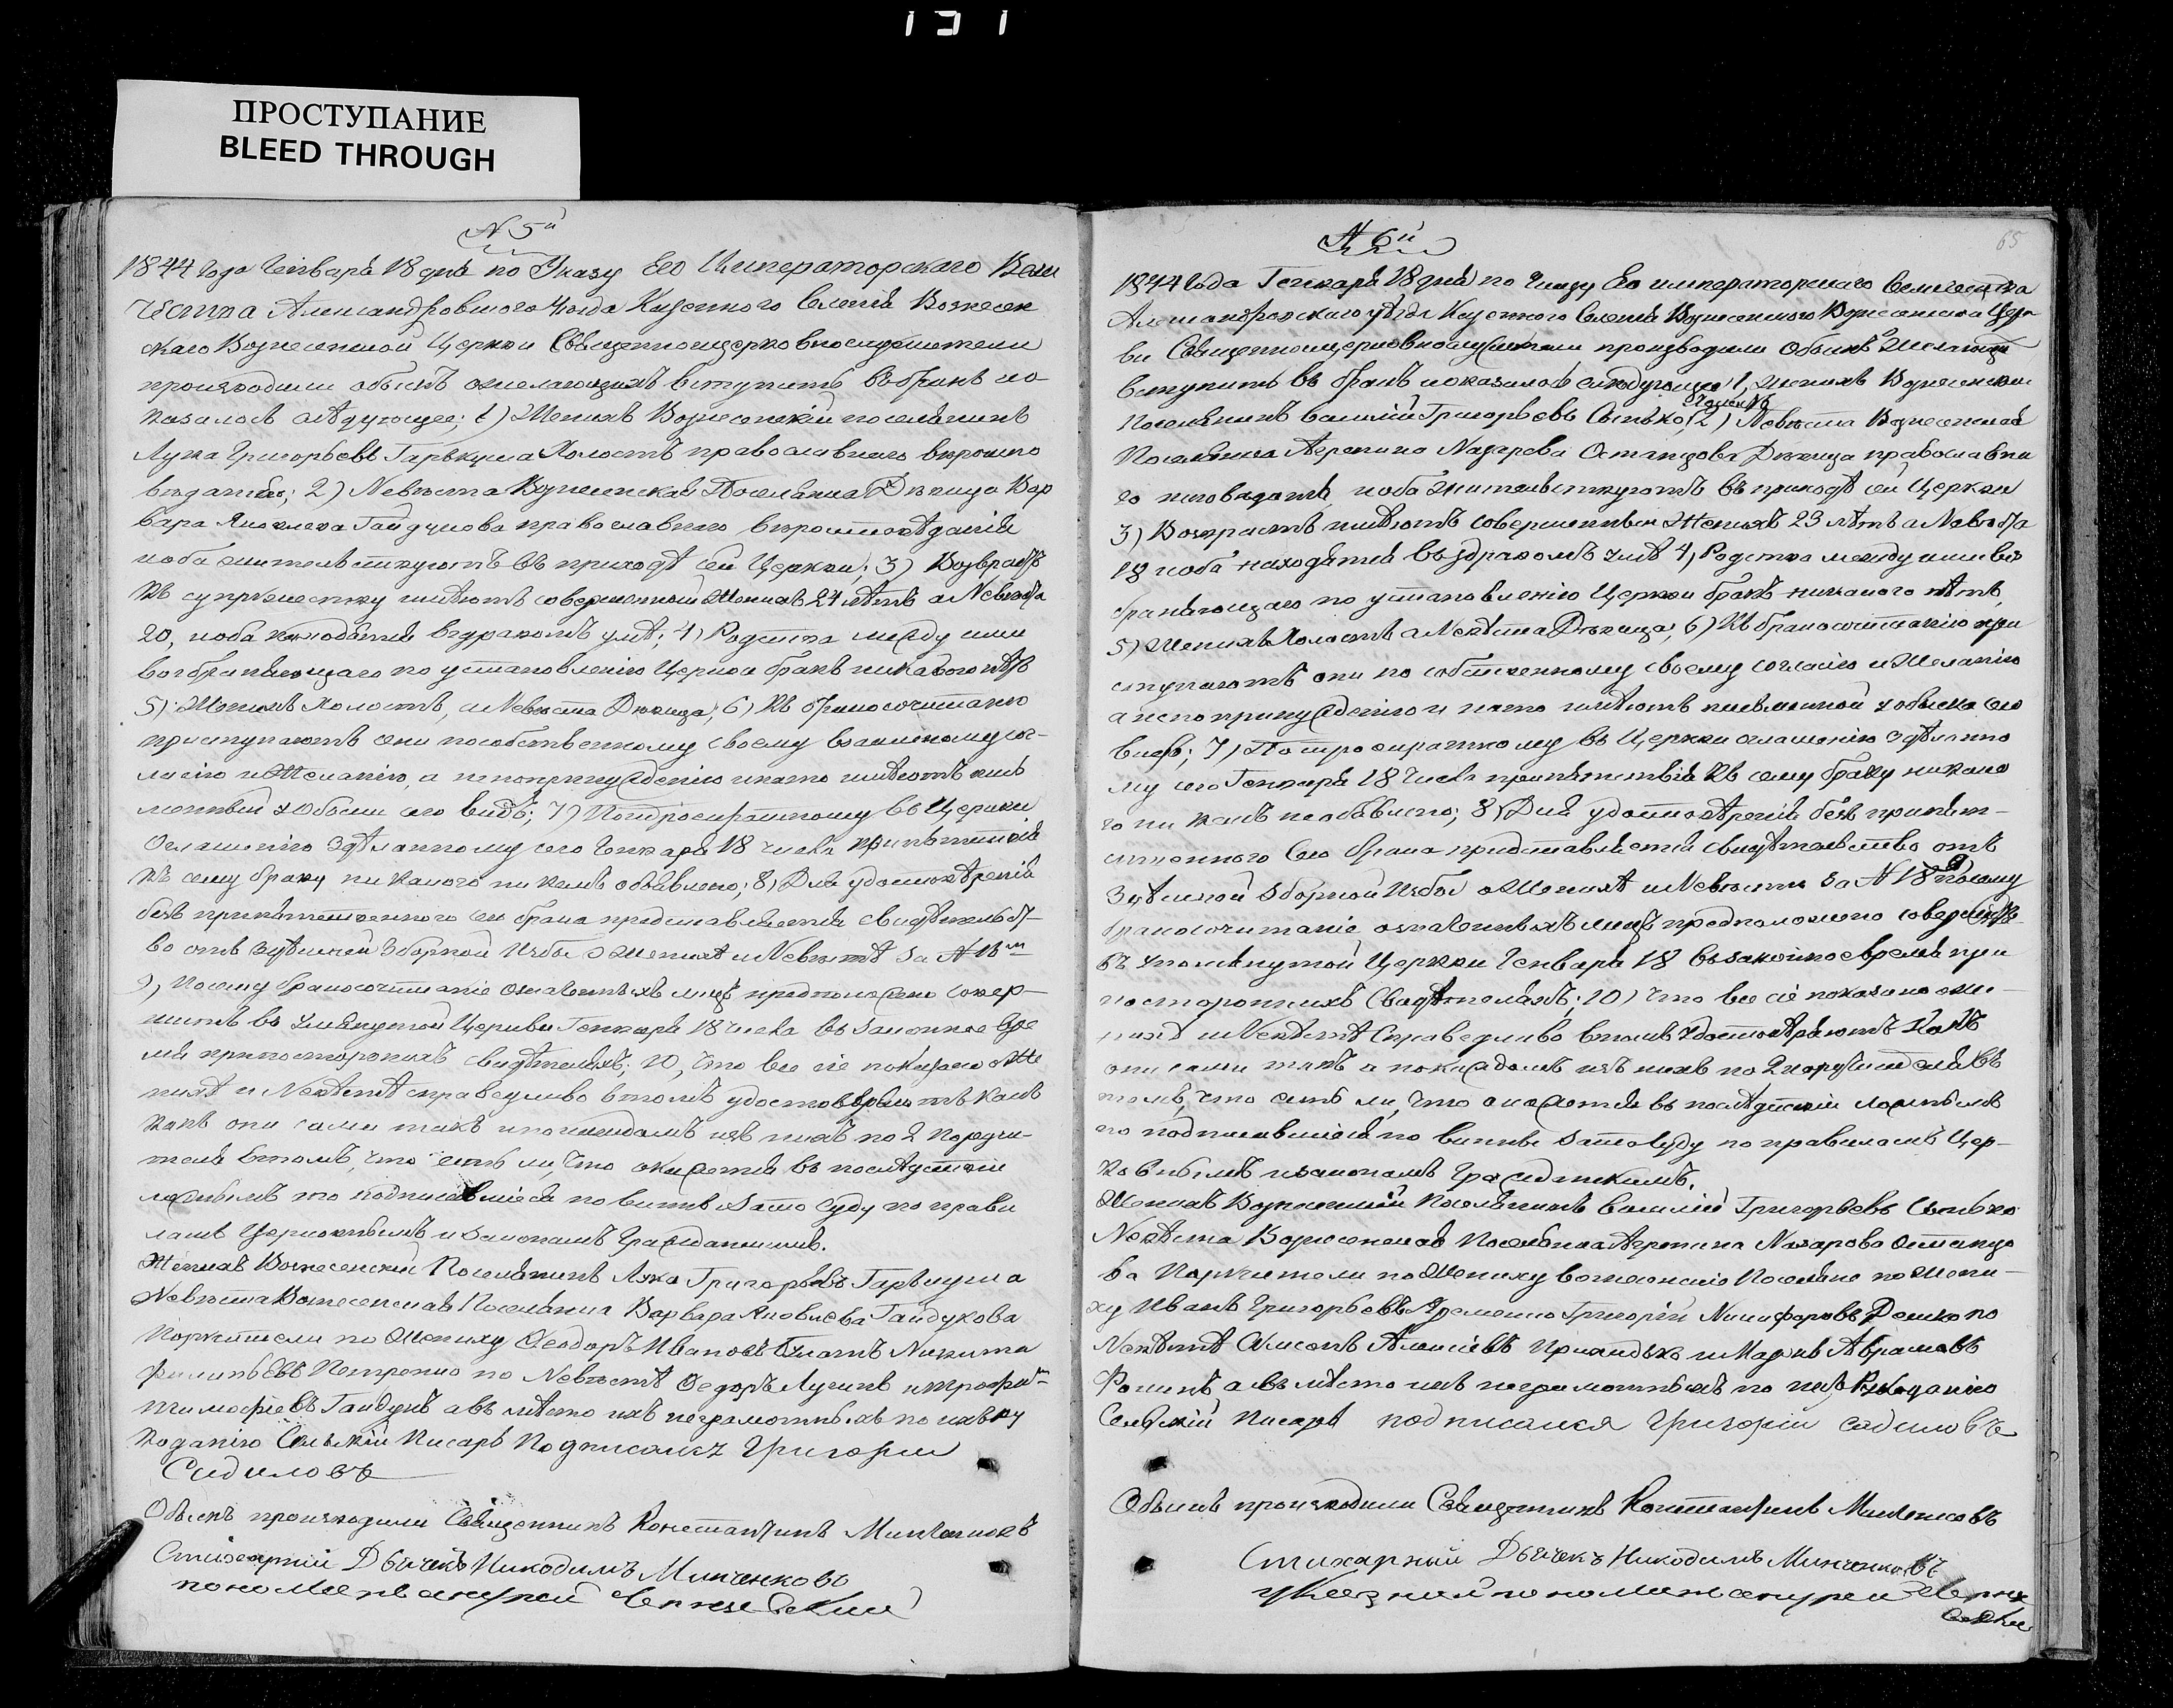 131
ПРОСТУПАНИЕ
BLEED THROUGH
N 5й
1844 Года Генваря 18 дня по Указу Его Императорскаго Вели
чества Александровского Уезда Казенного Селенія Вознесен
скаго Вознесенской Церкви Священноцерковнослужители
производили обыскъ о желающихъ вступить въ бракъ и о-
казалось следующее; 1) Женихъ Вознесенскій поселянинъ
Лука Григорьевъ Гаркуша Холостъ православнаго вероиспо
веданія; 2) Невѣста Вознесенская Поселянка Дѣвица Вар
вара Яковлева Гайдукова православнаго вероисповѣданія
и оба жительствуютъ въ приходѣ сей Церкви; 3) Возврастъ
къ супружеству имѣютъ совершенный Женихъ 24 лѣтъ а Невѣста
20, и оба находятся въ здравомъ умѣ; 4) Родства между ими
возбраняющаго по установленію Церкви бракъ никакого нѣтъ
5) Женихъ Холостъ, а Невѣста Дѣвица; 6) Къ бракосочитанію
приступаютъ они по собственному своему взаимному сог-
ласію и Желанію, а не по принужденію и на то имѣютъ пись
менный у обыска сего видъ; 7) По троекратному въ Церкви
Оглашенію здѣланному сего Генваря 18 числа препятствія
къ сему браку никакого ни кемъ объявлено; 8) Для удостовѣренія
безъ препятственного сей брака представляется свидѣтельст-
во отъ здѣшней Зборной Избы о Женихѣ и Невѣстѣ за N 18м
9) Посему бракосочитаніе означенныхъ лицъ предположено совер-
шить въ упомянутой Церкви Генваря 18 числа въ законное вре
мя при постороннихъ свидѣтеляхъ; 10, Что все сіе показано о Же
нихѣ и Невѣстѣ справедливо въ томъ удостовѣряютъ какъ
какъ они сами такъ и по каждомъ изъ нихъ по 2 Поручи-
теля въ томъ, что естьли, что окажется въ последствіи
ложнымъ то подписавшіеся повинны за то суду по прави
ламъ Церковнымъ и законамъ Гражданскимъ.
Женихъ Вознесенскій Поселянинъ Лука Григорьевъ Гаркуша
Невѣста Вознесенская Поселянка Варвара Яковлева Гайдукова
Поручители по Жениху Феодоръ Ивановъ Никита
Филиповъ Петренко по Невѣстѣ Федоръ Лукинъ и Трофи
Тимофѣевъ Гайдукъ а вмѣсто ихъ неграмотныхъ по ихъ ру
коданію Сельскій Писарь Подписался Григорій
Садиловъ
Обыскъ производили Священникъ Константинъ Минченковъ
Стихарный Дьячекъ Никодимъ Минченковъ
пономарь Андрей
N 6й
65
1844 Года Генваря 18 дня по Указу Его императорскаго величества
Александровскаго уѣзда Казенного Селенія Вознесенского Вознесенской Церк
ви Священноцерковнослужители производили Обыскъ о Желающи
вступить въ бракъ и оказалось следующее: 1, Женихъ Вознесенскій
Холостъ
Поселянинъ Василій Григорьевъ Сытько; 2) Невѣста Вознесенская
Поселянка Агрепина Назарова Останцова Дѣвица православна
го исповеданія, и оба Жительствуютъ въ приходѣ сей Церкви
3) Возрастъ имѣютъ совершенный Женихъ 23 лѣтъ а Невѣста
18 и оба находятся въ здравомъ умѣ 4) Родства между ими воз
браняющаго по установленію Церкви бракъ никакого нѣтъ,
5) Женихъ Холостъ а Невѣста Дѣвица; 6) Къ бракосочитанію при
ступаютъ они по собственному своему согласію и Желанію
а не по принужденію и на то имѣютъ письменной у обыска сего
видъ; 7) По троекратному въ Церкви оглашенію здѣланно
му сего Генваря 18 числа препятствія къ сему браку никако
го ни кемъ необъявлено; 8) Для удостовѣренія безъ препят-
ственного Сего брака представляется свидѣтельство отъ
здѣшней Зборной Избы о Женихѣ и Невѣстѣ за N 18 9) Посему
бракосочитаніе означенныхъ лицъ предположено совершить
въ упомянутой Церкви Генваря 18 въ законное время при
постороннихъ Свидѣтеляхъ; 10) Что все сіе показано о Же-
нихѣ и Невѣстѣ Справедливо въ томъ Удостовѣряютъ какъ
они сами такъ и по каждомъ изъ нихъ по 2 поручителя въ
томъ, что естьли, что окажется въ последствіи ложнымъ
то подписавшіеся повинны за то суду по правиламъ Цер-
ковнымъ и законамъ Гражданскимъ.
Женихъ Вознесенскій Поселянинъ Василій Григорьевъ Сытько
Невѣста Вознесенская Поселянка Агрепина Назарова Останцо
ва Поручители по Жениху вознесенскіе Поселяне по Жени-
ху Иванъ Григорьевъ Яременко Григорій Никифоровъ Дешко по
Невѣстѣ Алексѣевъ и Маркъ Аврамовъ
Фоминъ а вмѣсто ихъ неграмотныхъ по ихъ Рукоданію
Сельскій Писарь подписался Григорій садиловъ
Обыскъ производили Священникъ Константинъ Минченковъ
Стихарный Дьячекъ Никодимъ Минченковъ
указный пономарь андрей